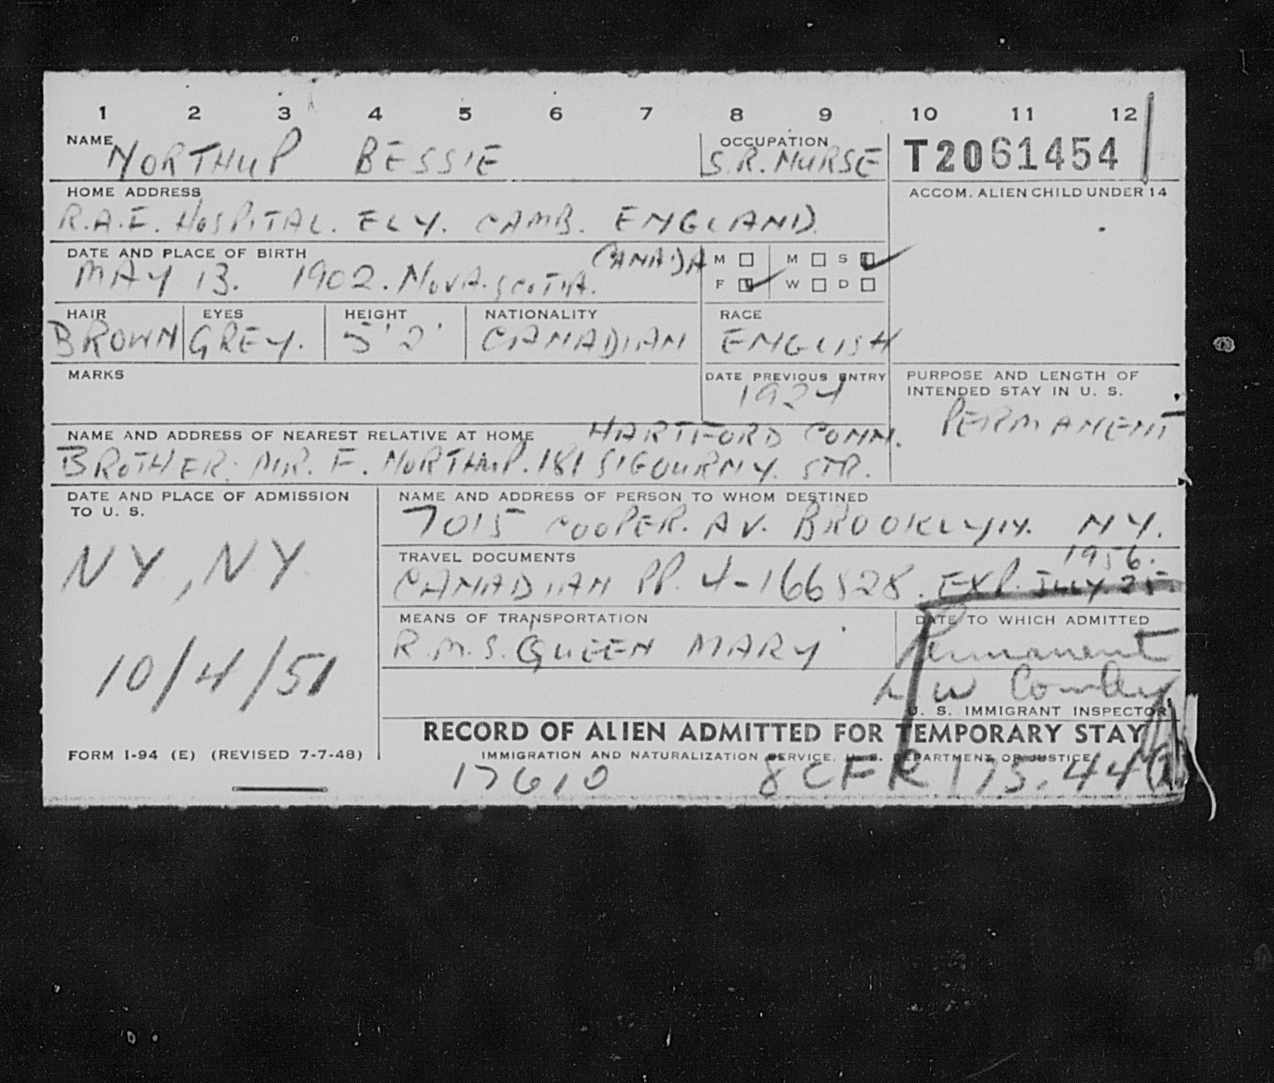 1 2 3 4 5 6 7 8 9 10 11 12
NAME OCCUPATION
NORTHUP BESSIE S.R. NURSE T2061454
HOME ADDRESS ACCOM. ALIEN CHILD UNDER 14
R.A.F. HOSPITAL. ELY. CAMB. ENGLAND
DATE AND PLACE OF BIRTH CANADA M M S
MAY 13. 1902. NOVA. SCOTIA. F W D
HAIR EYES HEIGHT NATIONALITY RACE
BROWN GREY. 5'2' CANADIAN ENGLISH
MARKS DATE PREVIOUS ENTRY PURPOSE AND LENGTH OF
INTENDED STAY IN U. S.
1924 PERMANENT
NAME AND ADDRESS OF NEAREST RELATIVE AT HOME HARTFORD CONN.
BROTHER: MR. F. NORTHUP. 181 SIGOURNY. STR.
DATE AND PLACE OF ADMISSION NAME AND ADDRESS OF PERSON TO WHOM DESTINED
TO U. S.
7015 COOPER. AV. BROOKLYN. NY.
NY, NY TRAVEL DOCUMENTS 1956.
CANADIAN PP. 4-166828. EXP. JULY 25
MEANS OF TRANSPORTATION DATE TO WHICH ADMITTED
R.M.S. QUEEN MARY Permanent
10/4/51
U. S. IMMIGRANT INSPECTOR
RECORD OF ALIEN ADMITTED FOR TEMPORARY STAY
FORM I-94 (E) (REVISED 7-7-48) IMMIGRATION AND NATURALIZATION SERVICE, U. S. DEPARTMENT OF JUSTICE
17610 8 CFR 175.44